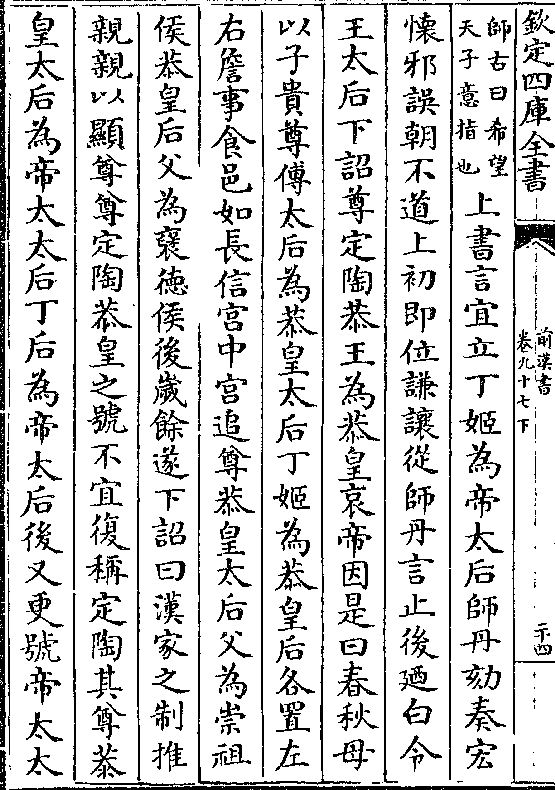 欽定四庫全書
前漢書
卷九十七下
二十四
師古曰希望
天子意指也
上書言宜立丁姬為帝太后師丹劾奏宏
懷邪誤朝不道上初即位謙讓從師丹言止後廼白令
王太后下詔尊定陶恭王為恭皇哀帝因是曰春秋母
以子貴尊傅太后為恭皇太后丁姬為恭皇后各置左
右詹事食邑如長信宮中宮追尊恭皇太后父為崇祖
侯恭皇后父為襃德侯後歲餘遂下詔曰漢家之制推
親親以顯尊尊定陶恭皇之號不宜復稱定陶其尊恭
皇太后為帝太太后丁后為帝太后後又更號帝太太